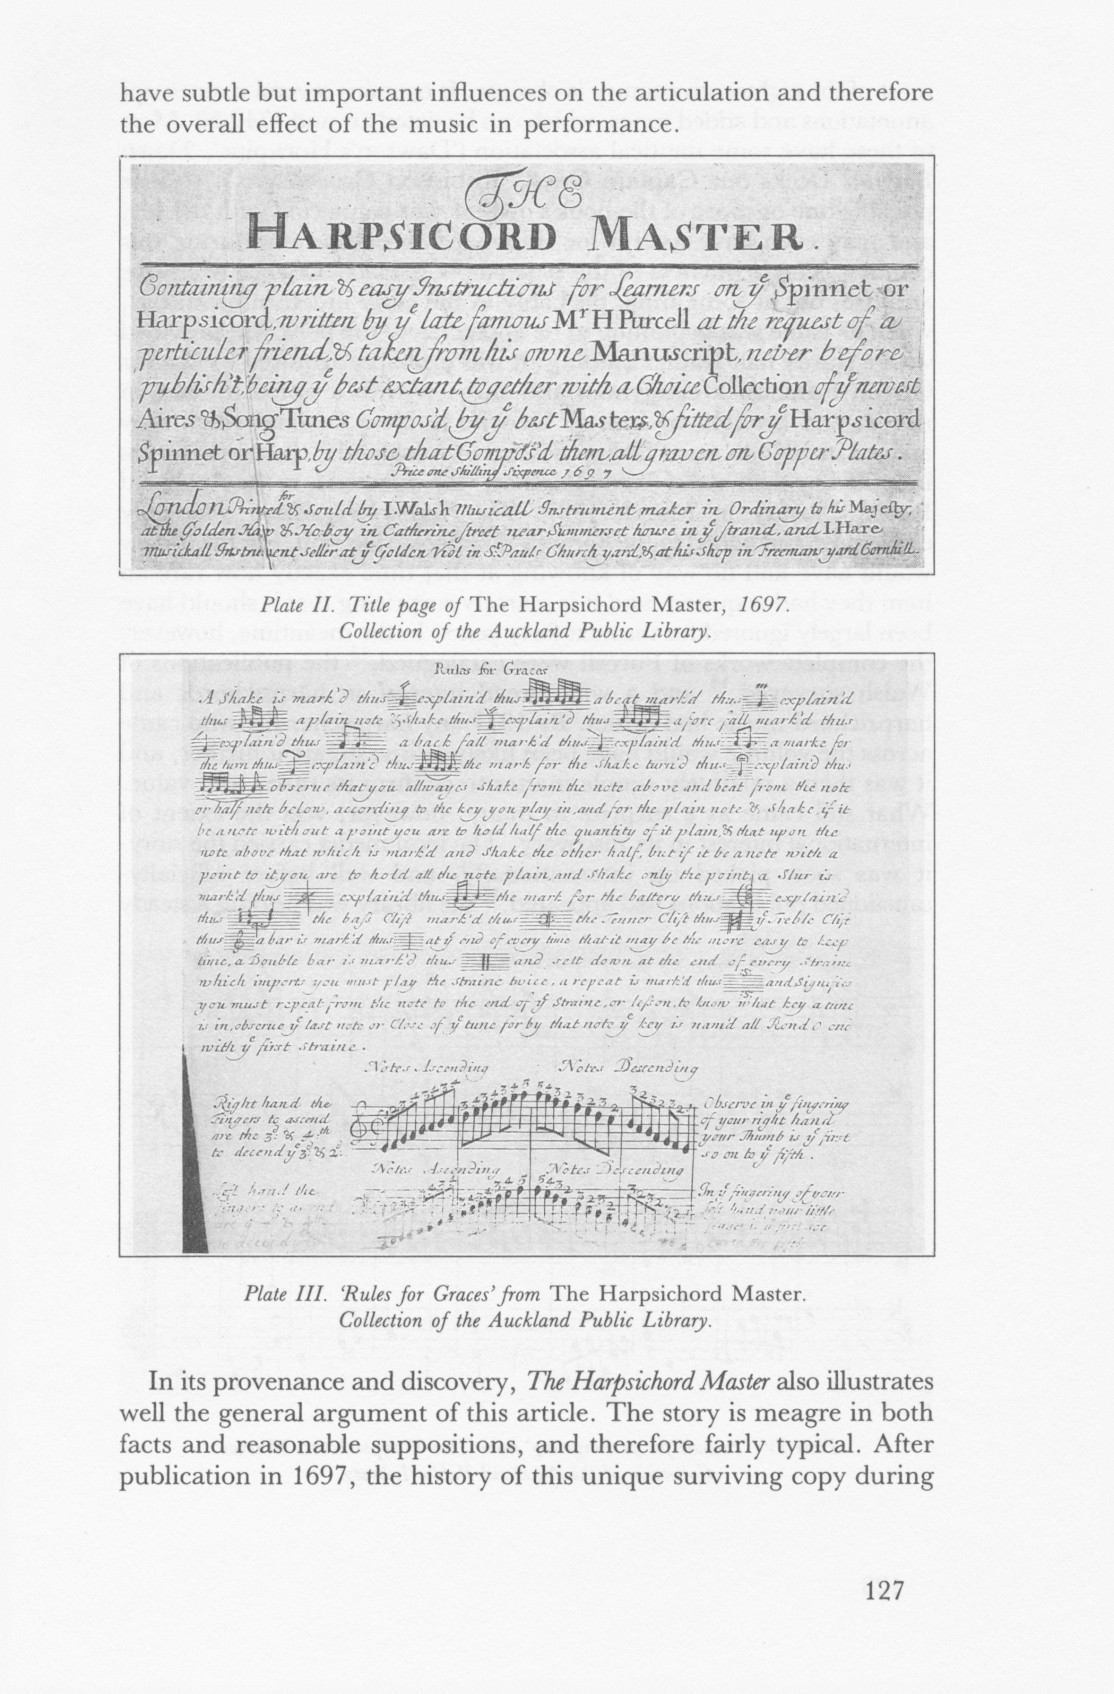 have subtle but important influences on the articulation and therefore
the overall effect of the music in performance.
THE
HARPSICORD MASTER.
Containing plain & easy Instructions for Learners on yᵉ Spinnet or
Harpsicord, written by yᵉ late famous Mʳ H Purcell at the request of a
perticuler friend, & taken from his owne Manuscript, never before
publish't, being yᵉ best extant, together with a Choice Collection of yᵉ newest
Aires & Song Tunes Compos'd by yᵉ best Masters, & fitted for yᵉ Harpsicord
Spinnet or Harp, by those that Compos'd them, all graven on Copper Plates.
Price one shilling sixpence 1697
London Printed for & sould by I.Walsh Musicall Instrument maker in Ordinary to his Majesty,
at the Golden Harp & Hoboy in Catherine street near Summerset house in yᵉ strand, and I.Hare
musickall Instrument seller at yᵉ Golden Viol in Sᵗ Pauls Church yard, & at his shop in Freemans yard Cornhill.
Plate II. Title page of The Harpsichord Master, 1697.
Collection of the Auckland Public Library.
Rules for Graces
A shake is mark'd thus explain'd thus a beat mark'd thus explain'd
thus a plain note & shake thus explain'd thus a fore fall mark'd thus
explain'd thus a back fall mark'd thus explain'd thus a marke for
the turn thus explain'd thus the mark for the shake turn'd thus explain'd thus
observe that you allwayes shake from the note above and beat from the note
or half note below, according to the key you play in, and for the plain note & shake, if it
be a note with out a point you are to hold half the quantity of it plain, & that upon the
note above that which is mark'd and shake the other half, but if it be a note with a
point to it, you are to hold all the note plain, and shake only the point, a Slur is
mark'd thus explain'd thus the mark for the battery thus explain'd
thus the bass Clift mark'd thus the Tenner Clift thus yᵉ Treble Clift
thus a bar is mark'd thus at yᵉ end of every time that it may be the more easy to keep
time, a Double bar is mark'd thus and sett down at the end of every Straine
which imports you must play the straine twice, a repeat is mark'd thus and signifies
you must repeat from the note to the end of yᵉ Straine, or lesson, to know what key a tune
is in, observe yᵉ last note or Close of yᵉ tune for by that note yᵉ key is nam'd all Rondo end
with yᵉ first straine.
Notes Ascending Notes Descending
Right hand the
Fingers to ascend
are the 3ᵈ & 4ᵗʰ
to decend yᵉ 3ᵈ & 2ᵈ
Observe in yᵉ fingering
of your right hand
your Thumb is yᵉ first
so on to yᵉ fifth.
Notes Ascending Notes Descending
Left hand the
In yᵉ fingering of your
left hand your little
Plate III. 'Rules for Graces' from The Harpsichord Master.
Collection of the Auckland Public Library.
In its provenance and discovery, The Harpsichord Master also illustrates
well the general argument of this article. The story is meagre in both
facts and reasonable suppositions, and therefore fairly typical. After
publication in 1697, the history of this unique surviving copy during
127